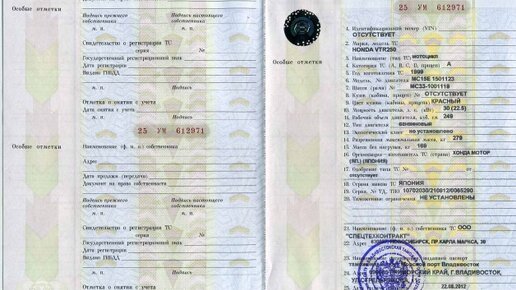 Особые отметки
Подпись прежнего собственника
Подпись настоящего собственника
М. П.
М. П.
Свидетельство о регистрации ТС
серия
№
Государственный регистрационный знак
Дата регистрации
Выдано ГИБДД
М. П.
Подпись
Отметка о снятии с учета
Дата снятия с учета
М. П.
25 УМ 612971
Особые отметки
Наименование (ф. и. о.) собственника
Адрес
Дата продажи (передачи)
Документ на право собственности
Подпись прежнего собственника
Подпись настоящего собственника
М. П.
М. П.
Свидетельство о регистрации ТС
серия
№
Государственный регистрационный знак
Дата регистрации
Выдано ГИБДД
М. П.
Подпись
25 УМ 612971
Особые отметки
1. Идентификационный номер (VIN)
ОТСУТСТВУЕТ
2. Марка, модель ТС
HONDA VTR250
3. Наименование (тип ТС) мотоцикл
4. Категория ТС (А, В, С, D, прицеп) А
5. Год изготовления ТС 1999
6. Модель, № двигателя MC15E 1501123
7. Шасси (рама) № MC33-1001118
8. Кузов (кабина, прицеп) № ОТСУТСТВУЕТ
9. Цвет кузова (кабины, прицепа) КРАСНЫЙ
10. Мощность двигателя, л. с. (кВт) 30 (22.5)
11. Рабочий объем двигателя, куб. см 249
12. Тип двигателя бензиновый
13. Экологический класс не установлено
14. Разрешенная максимальная масса, кг 279
15. Масса без нагрузки, кг 169
16. Организация-изготовитель ТС (страна) ХОНДА МОТОР
(ЯПОНИЯ)
17. Одобрение типа ТС №
отсутствует
18. Страна вывоза ТС ЯПОНИЯ
19. Серия, № ТД, ТПО 10702030/210812/0065290
20. Таможенные ограничения НЕ УСТАНОВЛЕНЫ
21. Наименование (ф. и. о.) собственника ТС ООО
"СПЕЦТЕХКОНТРАКТ"
22. Адрес НОВОСИБИРСК, ПР.КАРЛА МАРКСА, 30
порт Владивосток
КРАЙ, Г.ВЛАДИВОСТОК,
22.08.2012
М. П.
Подпись